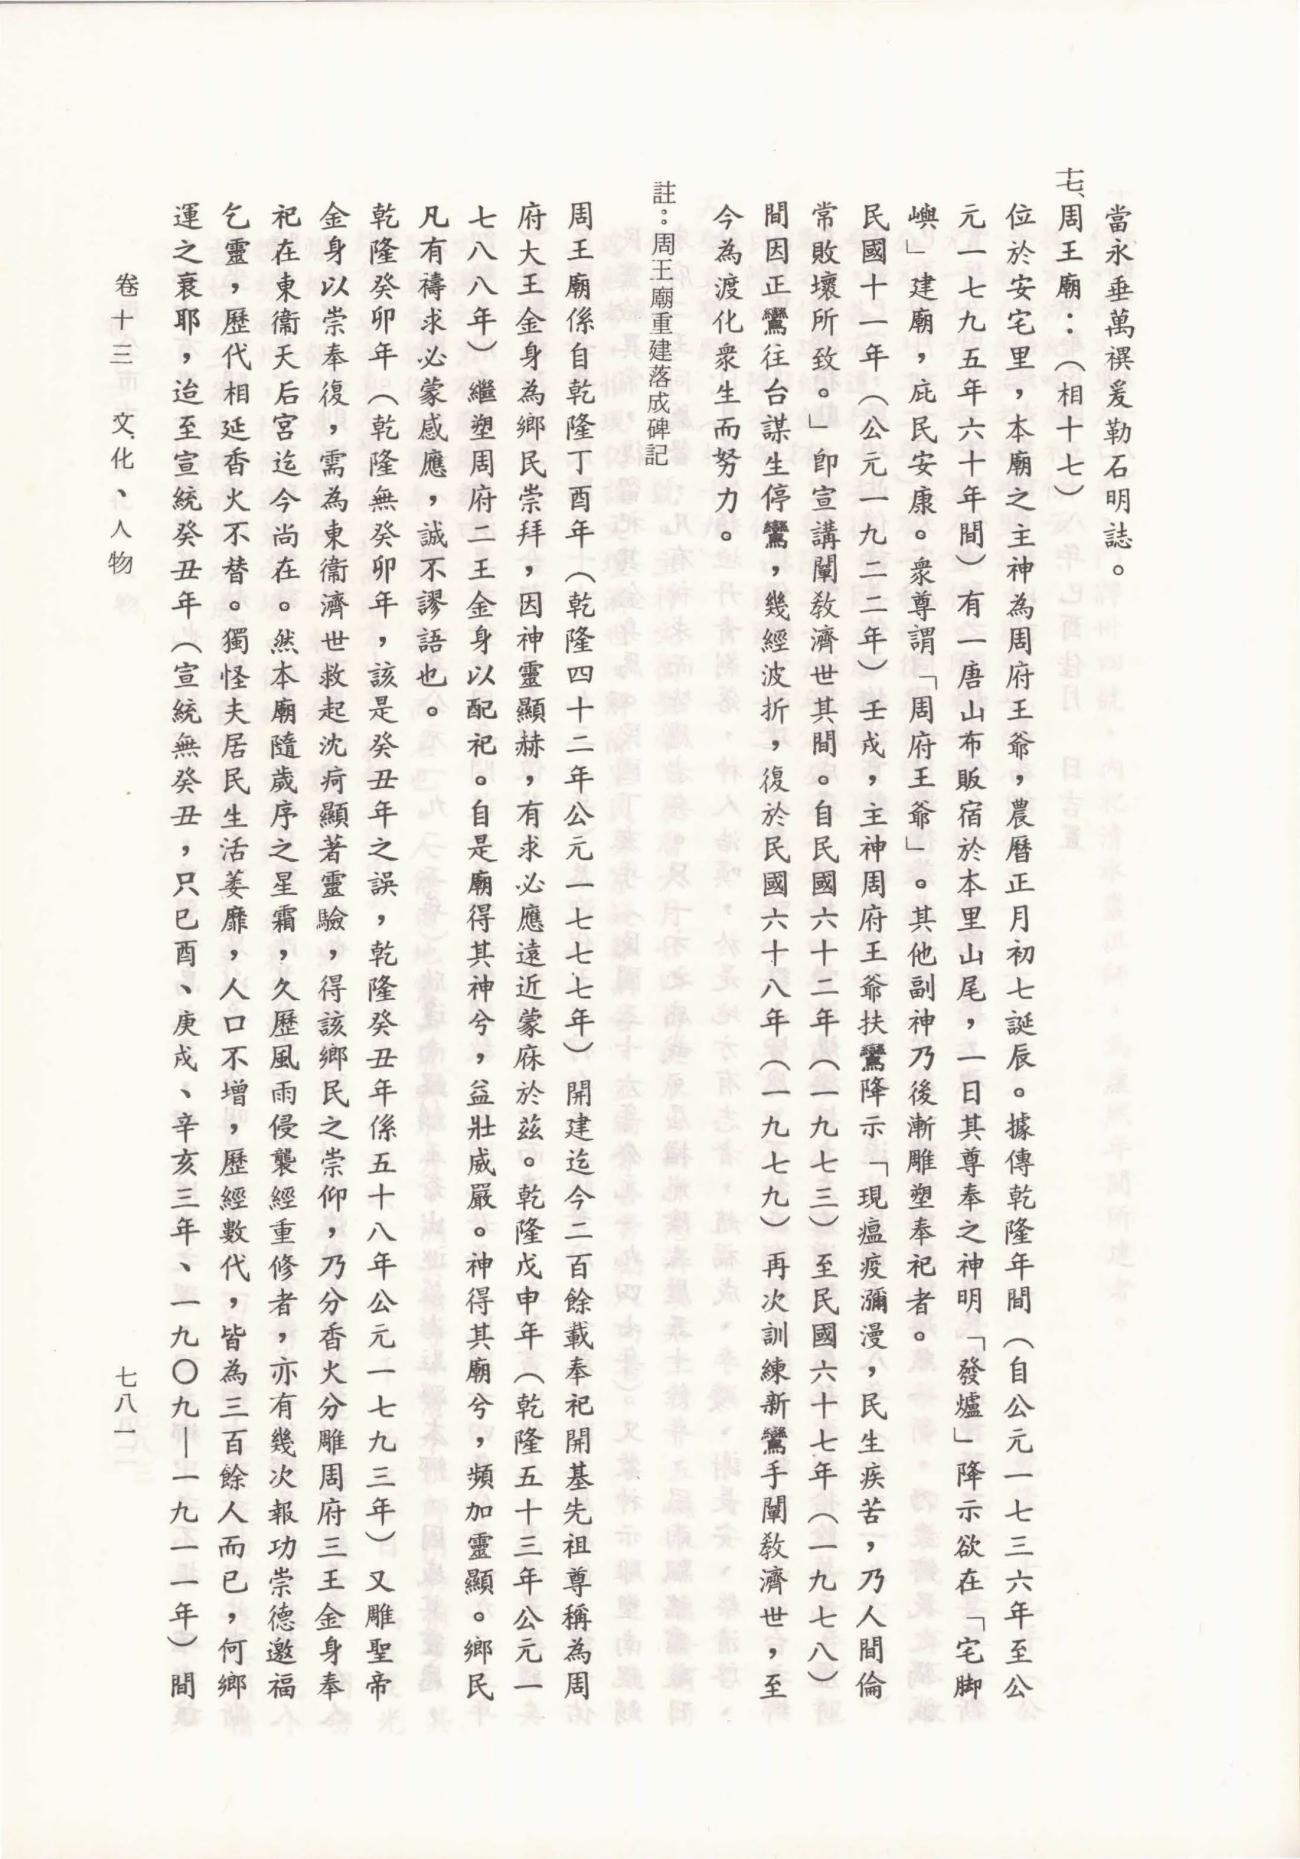 當永垂萬禩爰勒石明誌。
七、周王廟：（相十七）
位於安宅里，本廟之主神為周府王爺，農曆正月初七誕辰。據傳乾隆年間（自公元一七三六年至公
元一七九五年六十年間）有一唐山布販宿於本里山尾，一日其尊奉之神明「發爐」降示欲在「宅脚
嶼」建廟，庇民安康。衆尊謂「周府王爺」。其他副神乃後漸雕塑奉祀者。
民國十一年（公元一九二二年）壬戌，主神周府王爺扶鸞降示「現瘟疫瀰漫，民生疾苦，乃人間倫
常敗壞所致。」卽宣講闡敎濟世其間。自民國六十二年（一九七三）至民國六十七年（一九七八）
間因正鸞往台謀生停鸞，幾經波折，復於民國六十八年（一九七九）再次訓練新鸞手闡敎濟世，至
今為渡化衆生而努力。
註：周王廟重建落成碑記
周王廟係自乾隆丁酉年（乾隆四十二年公元一七七七年）開建迄今二百餘載奉祀開基先祖尊稱為周
府大王金身為鄉民崇拜，因神靈顯赫，有求必應遠近蒙庥於茲。乾隆戊申年（乾隆五十三年公元一
七八八年）繼塑周府二王金身以配祀。自是廟得其神兮，益壯威嚴。神得其廟兮，頻加靈顯。鄉民
凡有禱求必蒙感應，誠不謬語也。
乾隆癸卯年（乾隆無癸卯年，該是癸丑年之誤，乾隆癸丑年係五十八年公元一七九三年）又雕聖帝
金身以崇奉後，需為東衞濟世救起沈疴顯著靈驗，得該鄉民之崇仰，乃分香火分雕周府三王金身奉
祀在東衞天后宮迄今尚在。然本廟隨歲序之星霜，久歷風雨侵襲經重修者，亦有幾次報功崇德邀福
乞靈，歷代相延香火不替。獨怪夫居民生活萎靡，人口不增，歷經數代，皆為三百餘人而已，何鄉
運之衰耶，迨至宣統癸丑年（宣統無癸丑，只己酉、庚戌、辛亥三年、一九〇九—一九一一年）間
卷十三　文化、人物
七八一